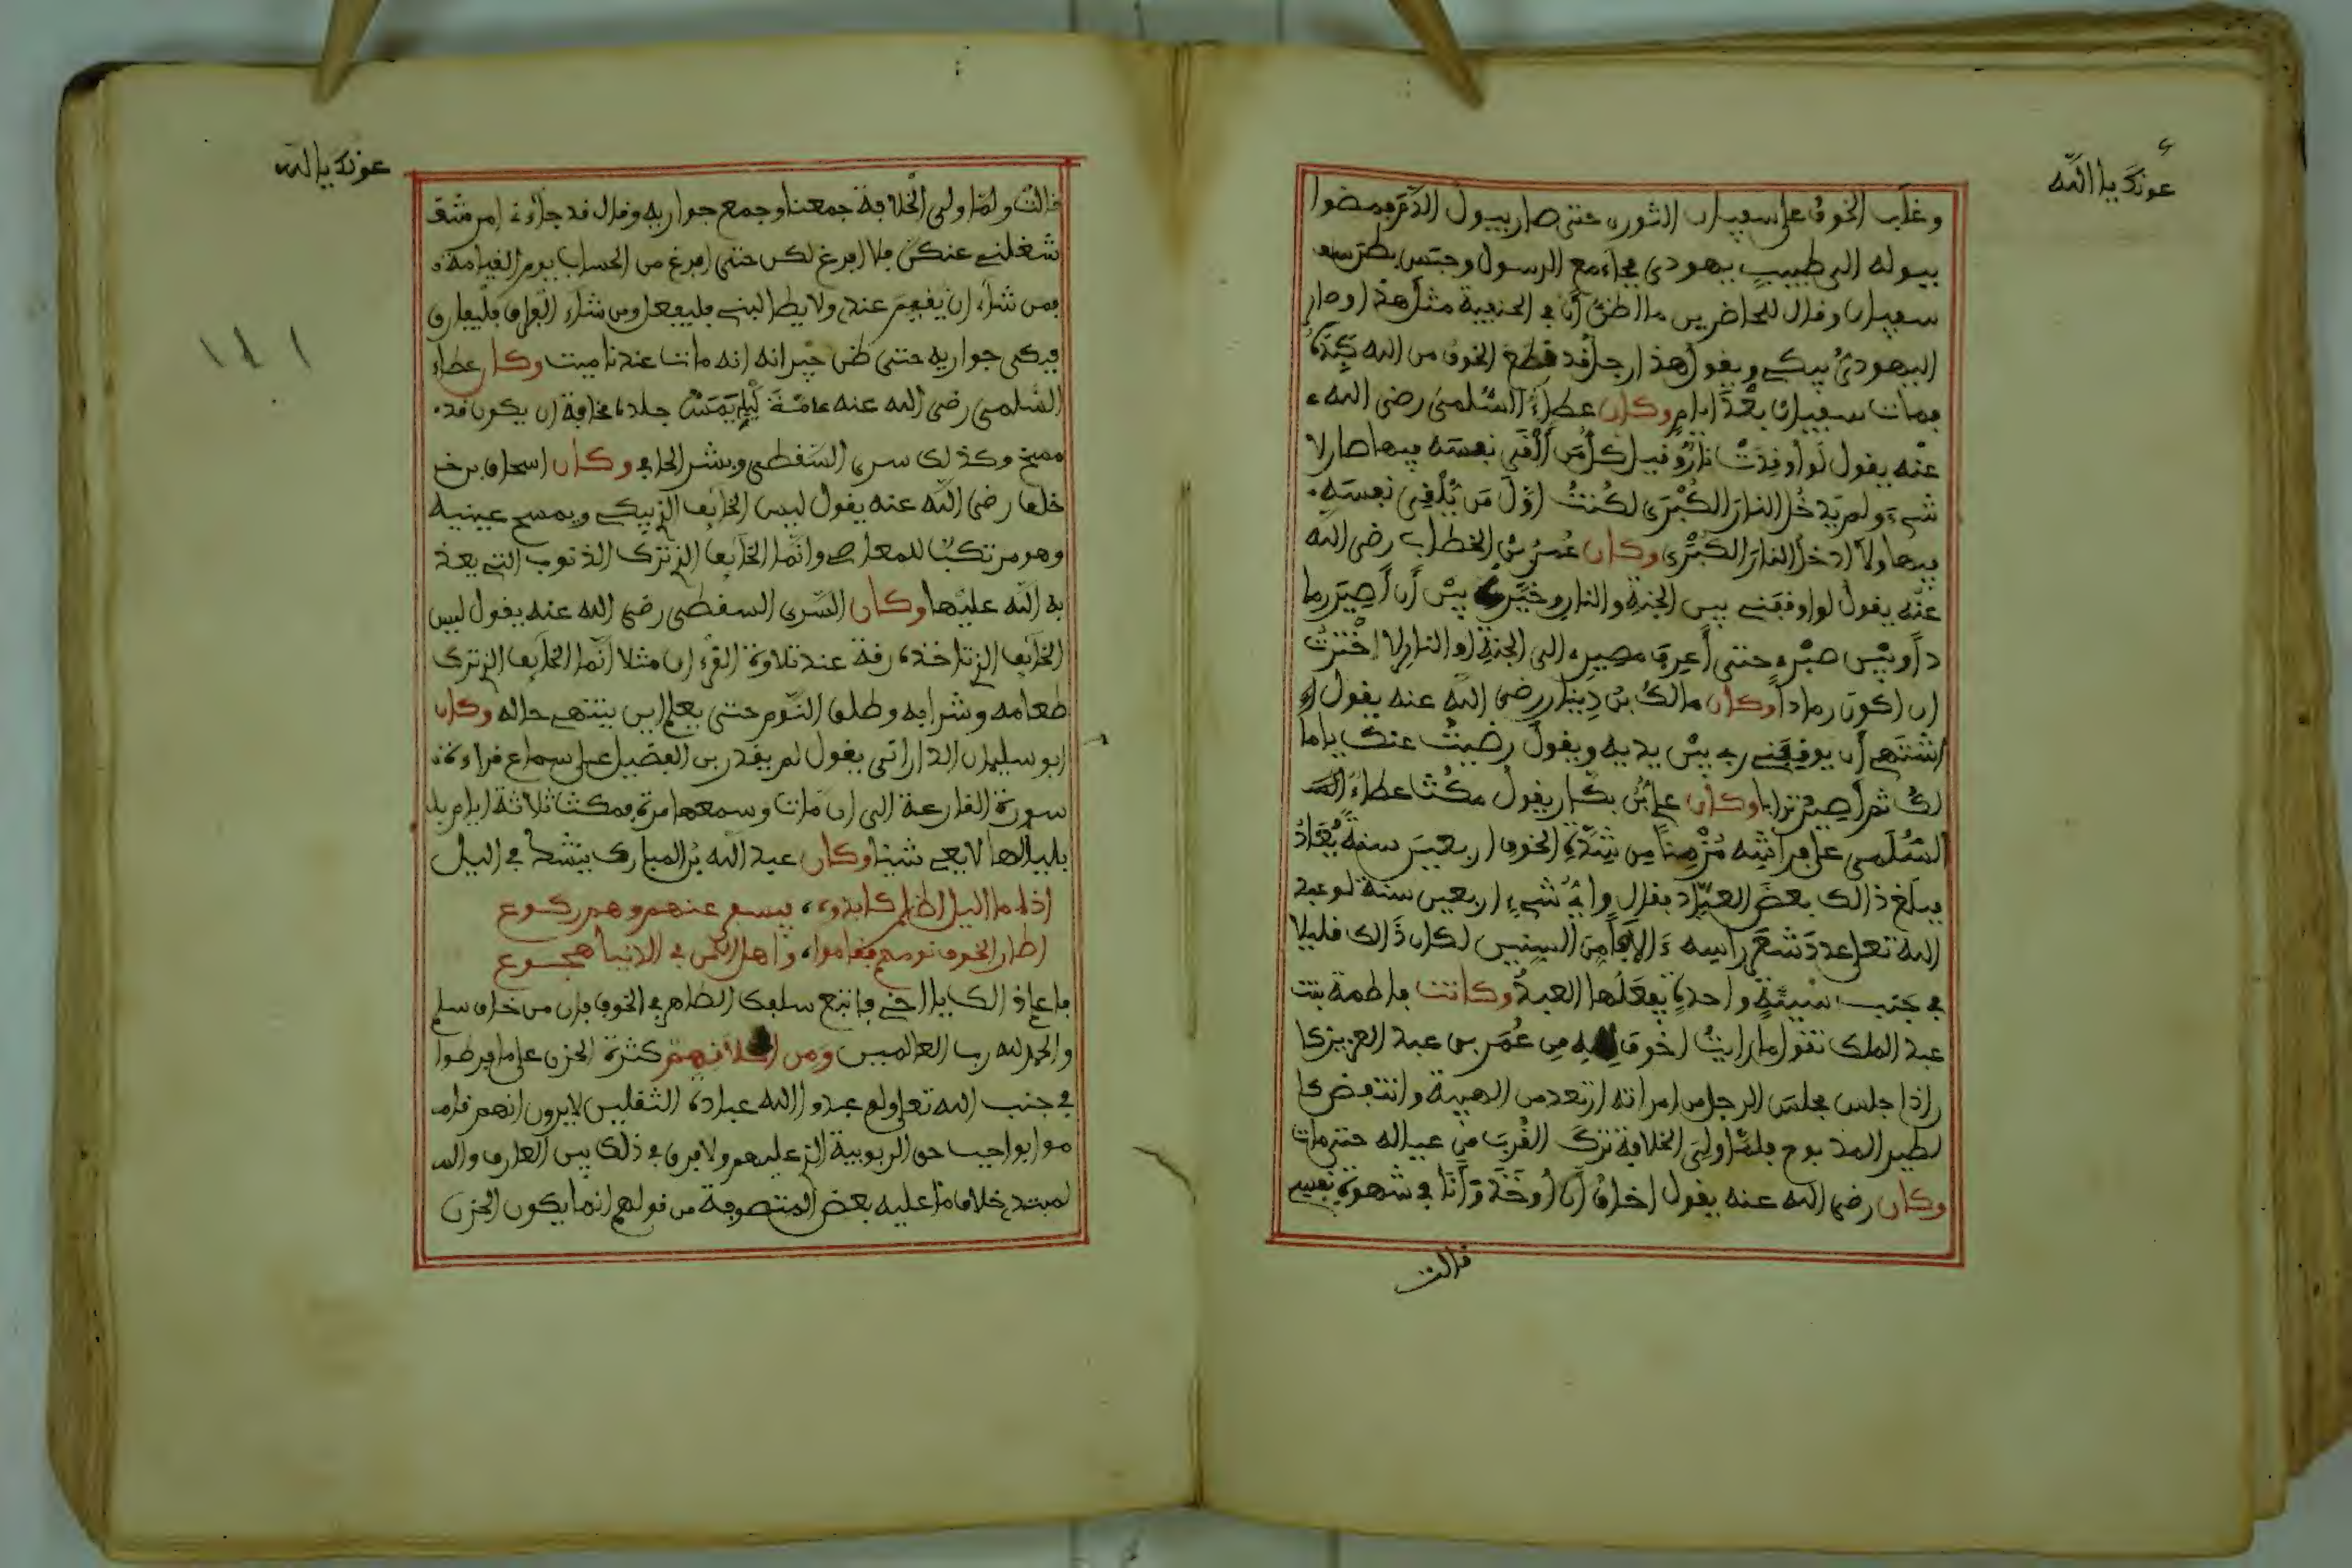 عونك يا الله
وغلب الخوف على سفيان الثوري حتى صار يبول الدم فمضوا
ببوله الى طبيب يهودي فجاء مع الرسول وجس بطن
سفيان وقال للحاضرين ما اظن أن في الحنيفية مثل هذا وصار
اليهودي يبكي ويقول هذا رجل قد قطع الخوف من الله كبده
فمات سفيان بعد ايام وكان عطاء السلمي رضي الله
عنه يقول لو أوقدت نار وقيل كل من ألقى نفسه فيها صار لا
شيء ولم يدخل النار الكبرى لكنت اول من يلقي نفسه
فيها ولا ادخل النار الكبرى وكان عمر بن الخطاب رضي الله
عنه يقول لو اوقفني بين الجنة والنار وخيرني بين أن أصير رما
دا وبين صبري حتى أعرف مصيري الى الجنة او النار لاخترت
ان اكون رمادا وكان مالك بن دينار رضي الله عنه يقول
اشتهي أن يوقفني ربي بين يديه ويقول رضيت عنك يا ما
لك ثم أصير ترابا وكان علي بن بكار يقول مكث عطاء
السلمي على فراشه مزمنا من شدة الخوف اربعين سنة يعاد
فبلغ ذالك بعض العباد فقال وأي شيء اربعين سنة لو عبد
الله تعلى عدد شعر راسه ءالافا من السنين لكان ذالك قليلا
في جنب سيئة واحدة يفعلها العبد وكانت فاطمة بنت
عبد الملك تقول ما رايت اخوف لله من عمر بن عبد العزيز كا
ن اذا جلس مجلس الرجل من امراته ارتعد من الهيبة وانتفض كا
لطير المذبوح فلما ولي الخلافة ترك القرب من عياله حتى مات
وكان رضي الله عنه يقول اخاف أن أوخذ وأنا في شهوة نفسي
قالت
عونك يا الله
قالت ولما ولي الخلافة جمعنا وجمع جواريه وقال قد جاءني امر
شغلني عنكن فلا افرغ لكن حتى افرغ من الحساب يوم القيامة
فمن شاء ان يقيم عندي ولا يطالبني فليفعل ومن شاء الفراق فليفارق
فبكى جواريه حتى ظن جيرانه انه مات عندنا ميت وكان عطاء
السلمي رضي الله عنه عامة ليله يمس جلده مخافة ان يكون قد
مسخ وكذلك سري السقطي وبشر الحافي وكان اسحاق بن
خلف رضي الله عنه يقول ليس الخائف الذي يبكي ويمسح عينيه
وهو مرتكب للمعاصي وانما الخائف الذي ترك الذنوب التي يعذ
به الله عليها وكان السري السقطي رضي الله عنه يقول ليس
الخائف الذي تاخذه رقة عند تلاوة القرءان مثلا انما الخائف الذي ترك
طعامه وشرابه وطلق النوم حتى يعلم اين ينتهي حاله وكان
ابو سليمان الداراني يقول لم يقدر بن الفضيل على سماع قراءة
سورة القارعة الى ان مات وسمعها مرة فمكث ثلاثة ايام
بلياليها لا يعي شيئا وكان عبد الله بن المبارك ينشد في اليل
اذا ما اليل اظلم كابدوه فيسفر عنهم وهم ركوع
اطار الخوف نومهم فقاموا واهل الامن في الدنيا هجوع
فاعلم ذالك يا اخي واتبع سلفك الطاهر في الخوف فان من خاف سلم
والحمد لله رب العالمين ومن اخلاقهم كثرة الحزن على ما فرطوا
في جنب الله تعلى ولو عبدوا الله عبادة الثقلين لا يرون انهم قا
موا بواجب حق الربوبية الذي عليهم ولا فرق في ذلك بين العارف وا
لمبتدي خلاف ما عليه بعض المتصوفة من قولهم انما يكون الحزن